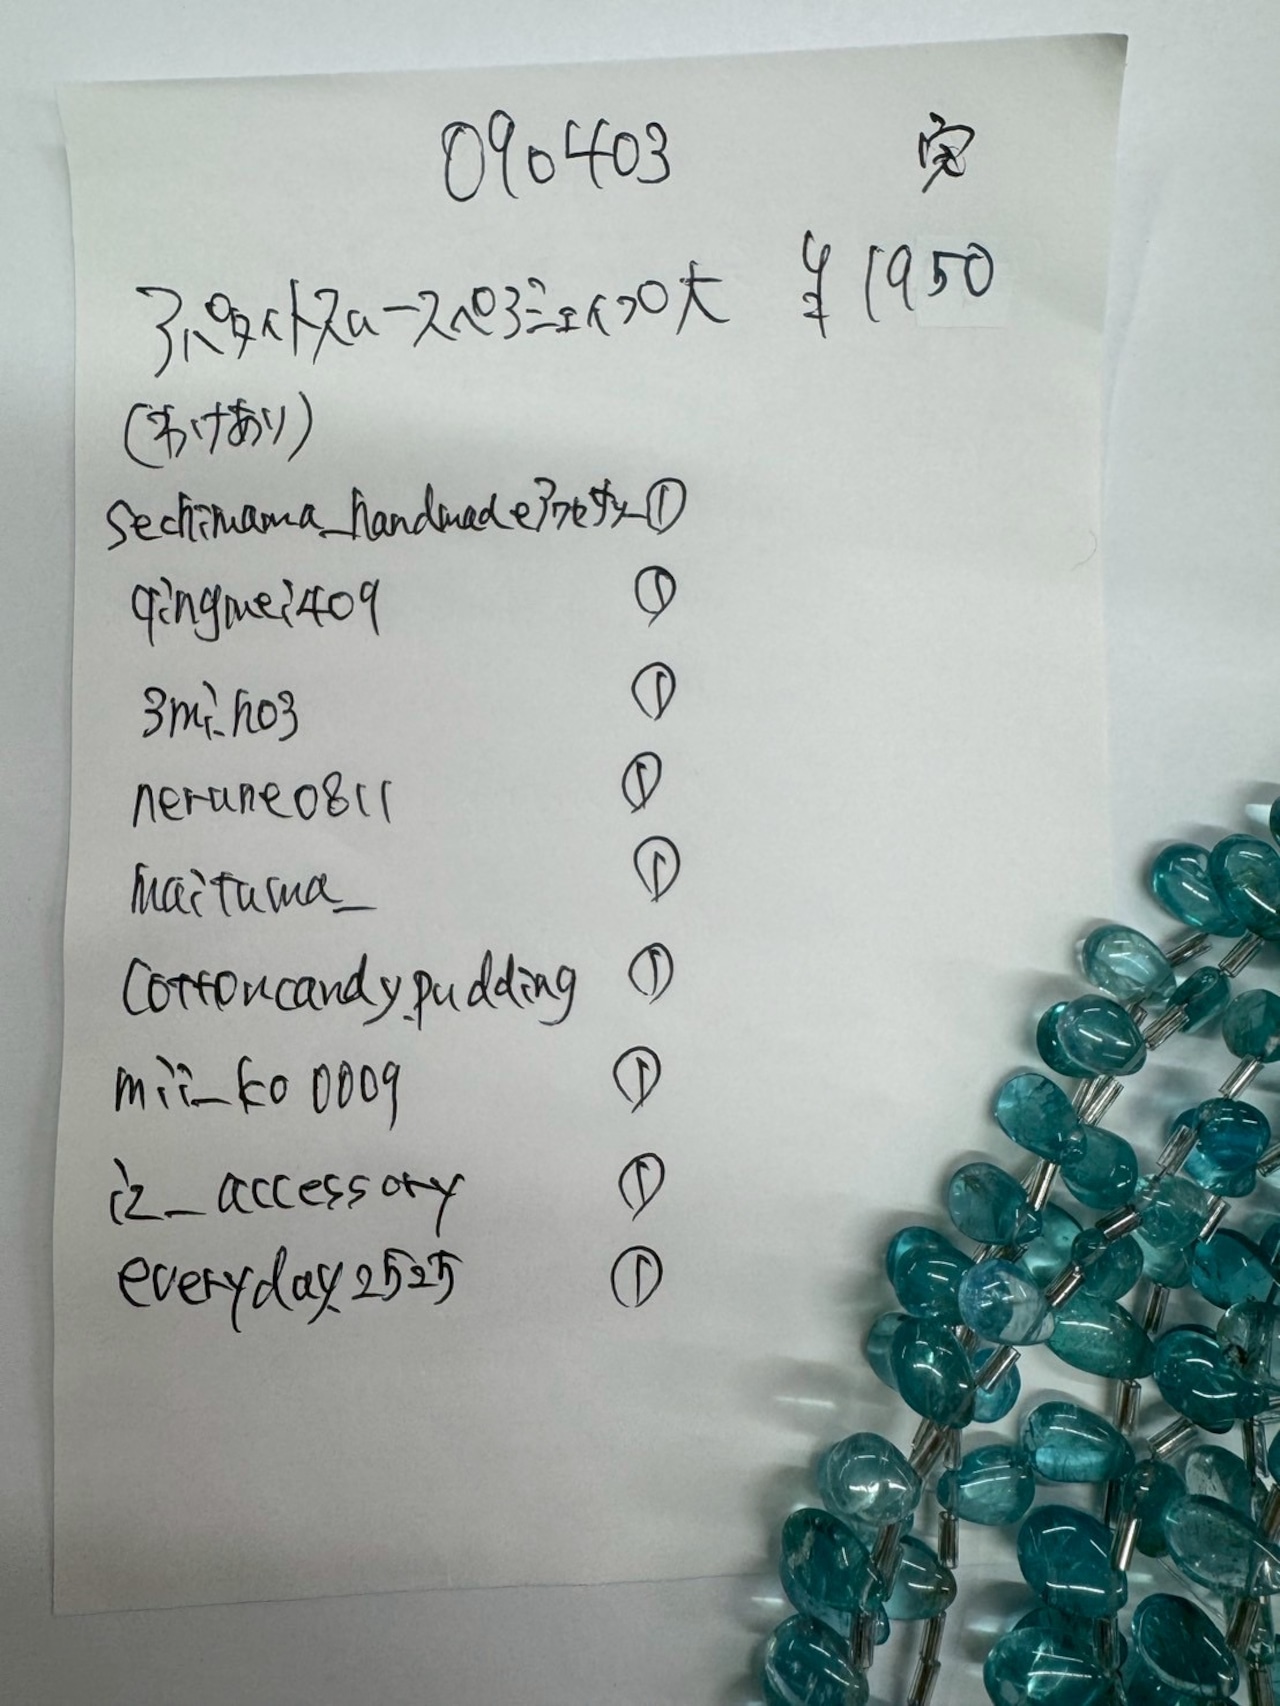 090403 完
アパタイトスムースペアシェイプ大 ¥1950
(わけあり)
sechimama_handmadeアクセサリー ①
qingmei409 ①
3mi_ho3 ①
nerune0811 ①
maituma_ ①
cottoncandy.pudding ①
mii_ko0009 ①
iz_accessory ①
everyday.2525 ①